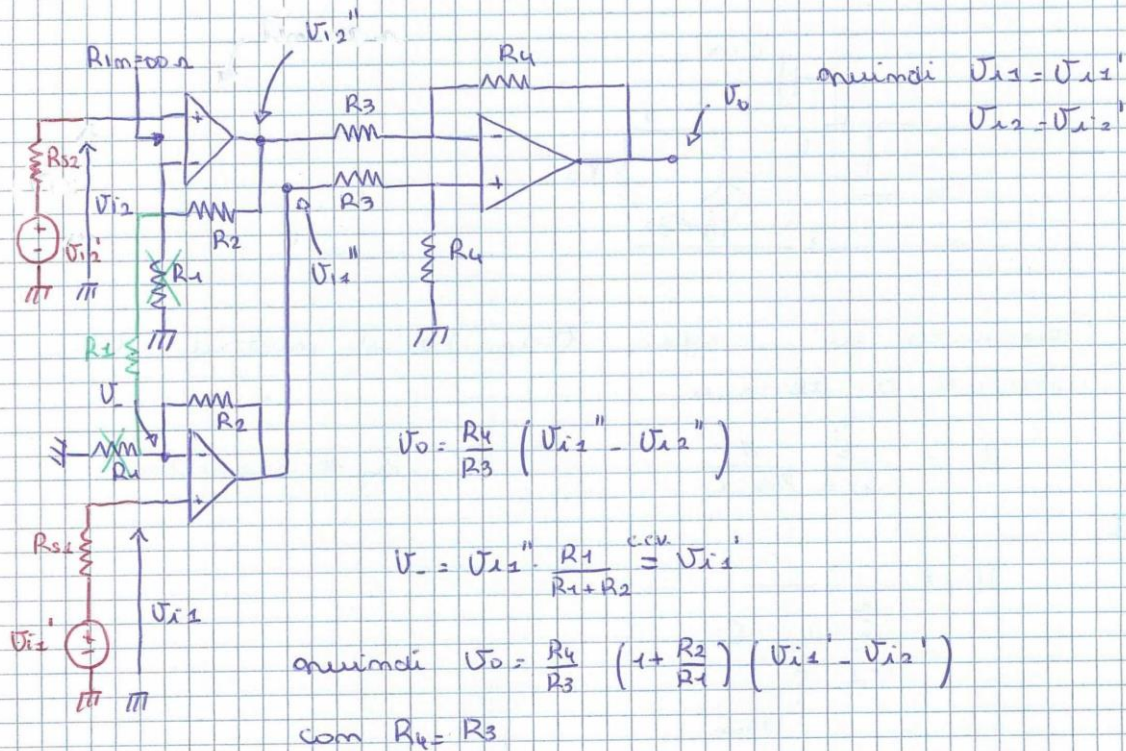 Vi2''
R1m=∞Ω
R4
quindi Vi1 = Vi1'
Vi2 = Vi2'
R3
V0
+
-
-
+
Rs2
Vi2
R2
R3
+
-
Vi2'
R1
Vi1''
R4
R1
V-
R2
R1
-
+
V0 = R4/R3 ( Vi1'' - Vi2'' )
Rs1
V- = Vi1'' · R1/(R1+R2) c.c.v. = Vi1'
Vi1
Vi1'
+
-
quindi V0 = R4/R3 (1 + R2/R1) ( Vi1' - Vi2' )
con R4 = R3